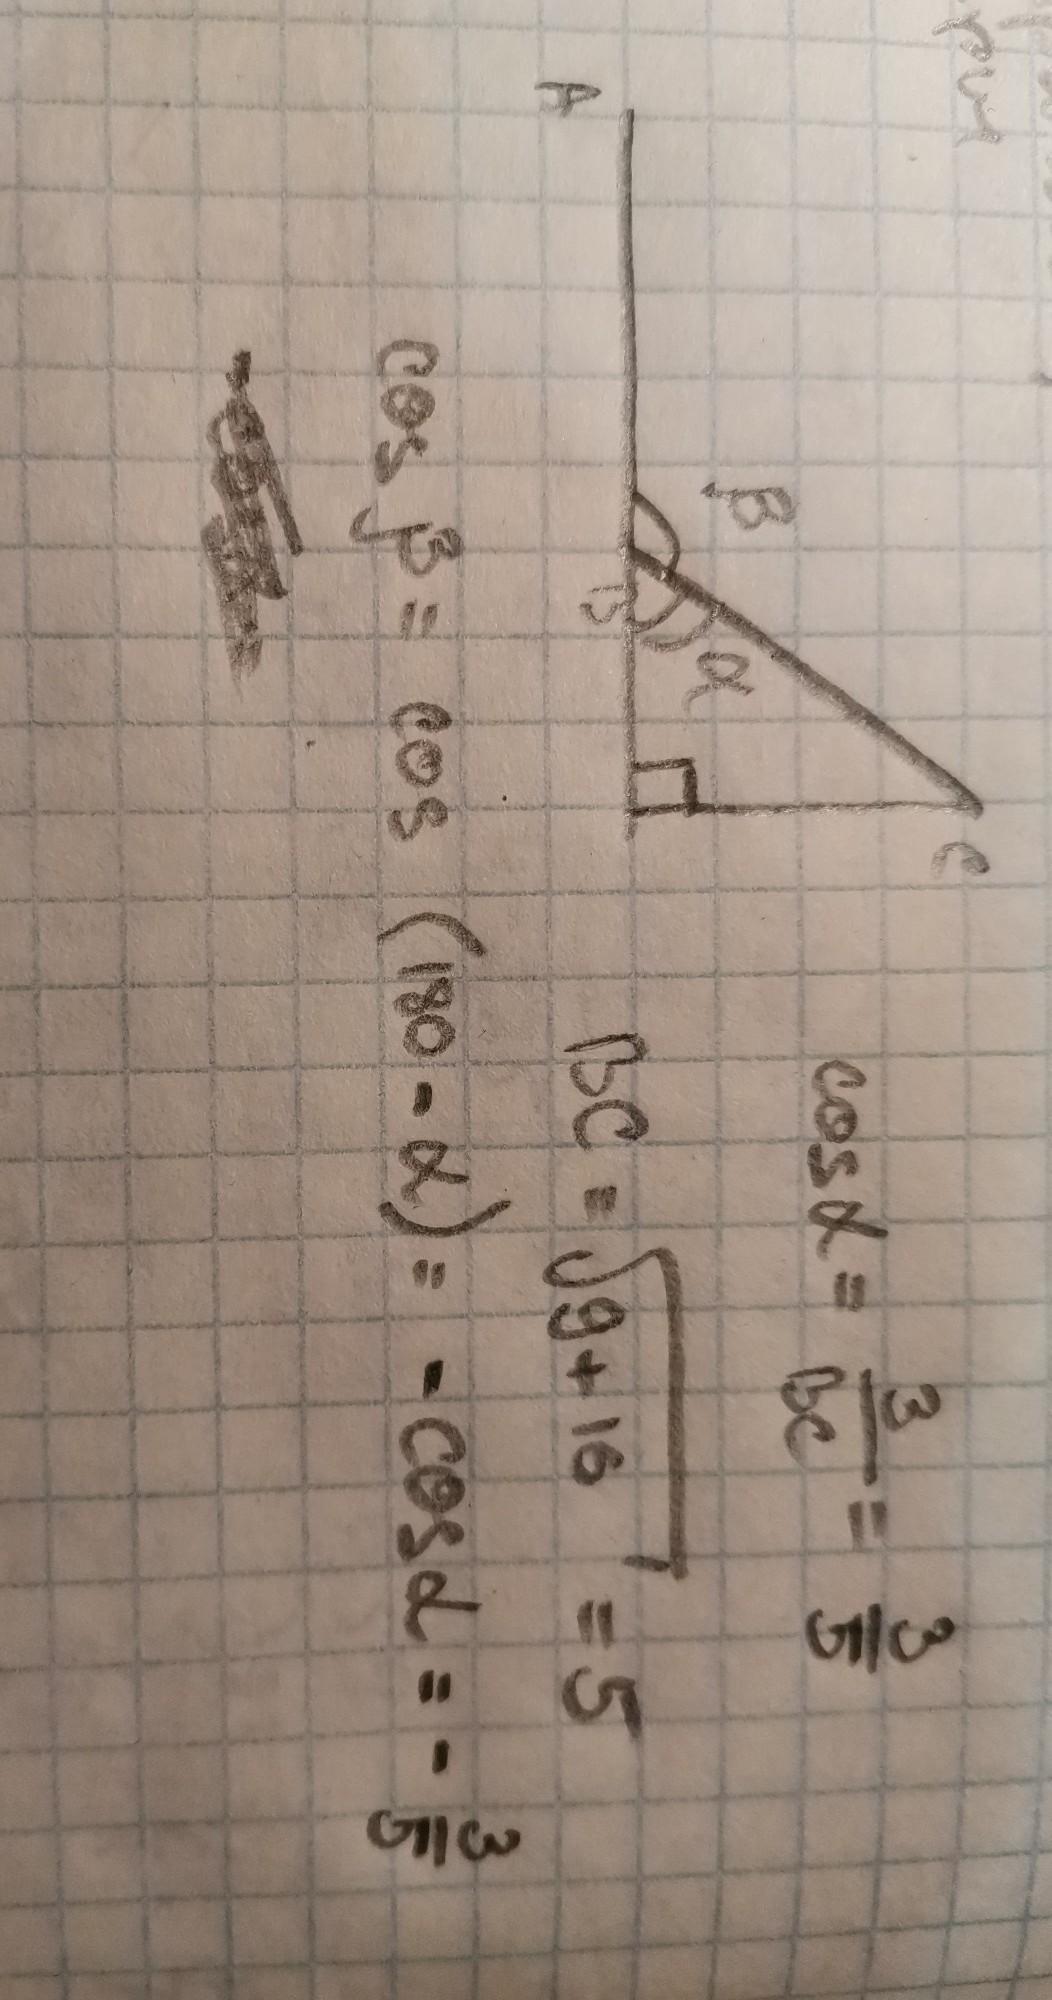 β
α
A
B
C
cos α = 3/BC = 3/5
BC = √9+16 = 5
cos β = cos (180 - α) = - cos α = - 3/5